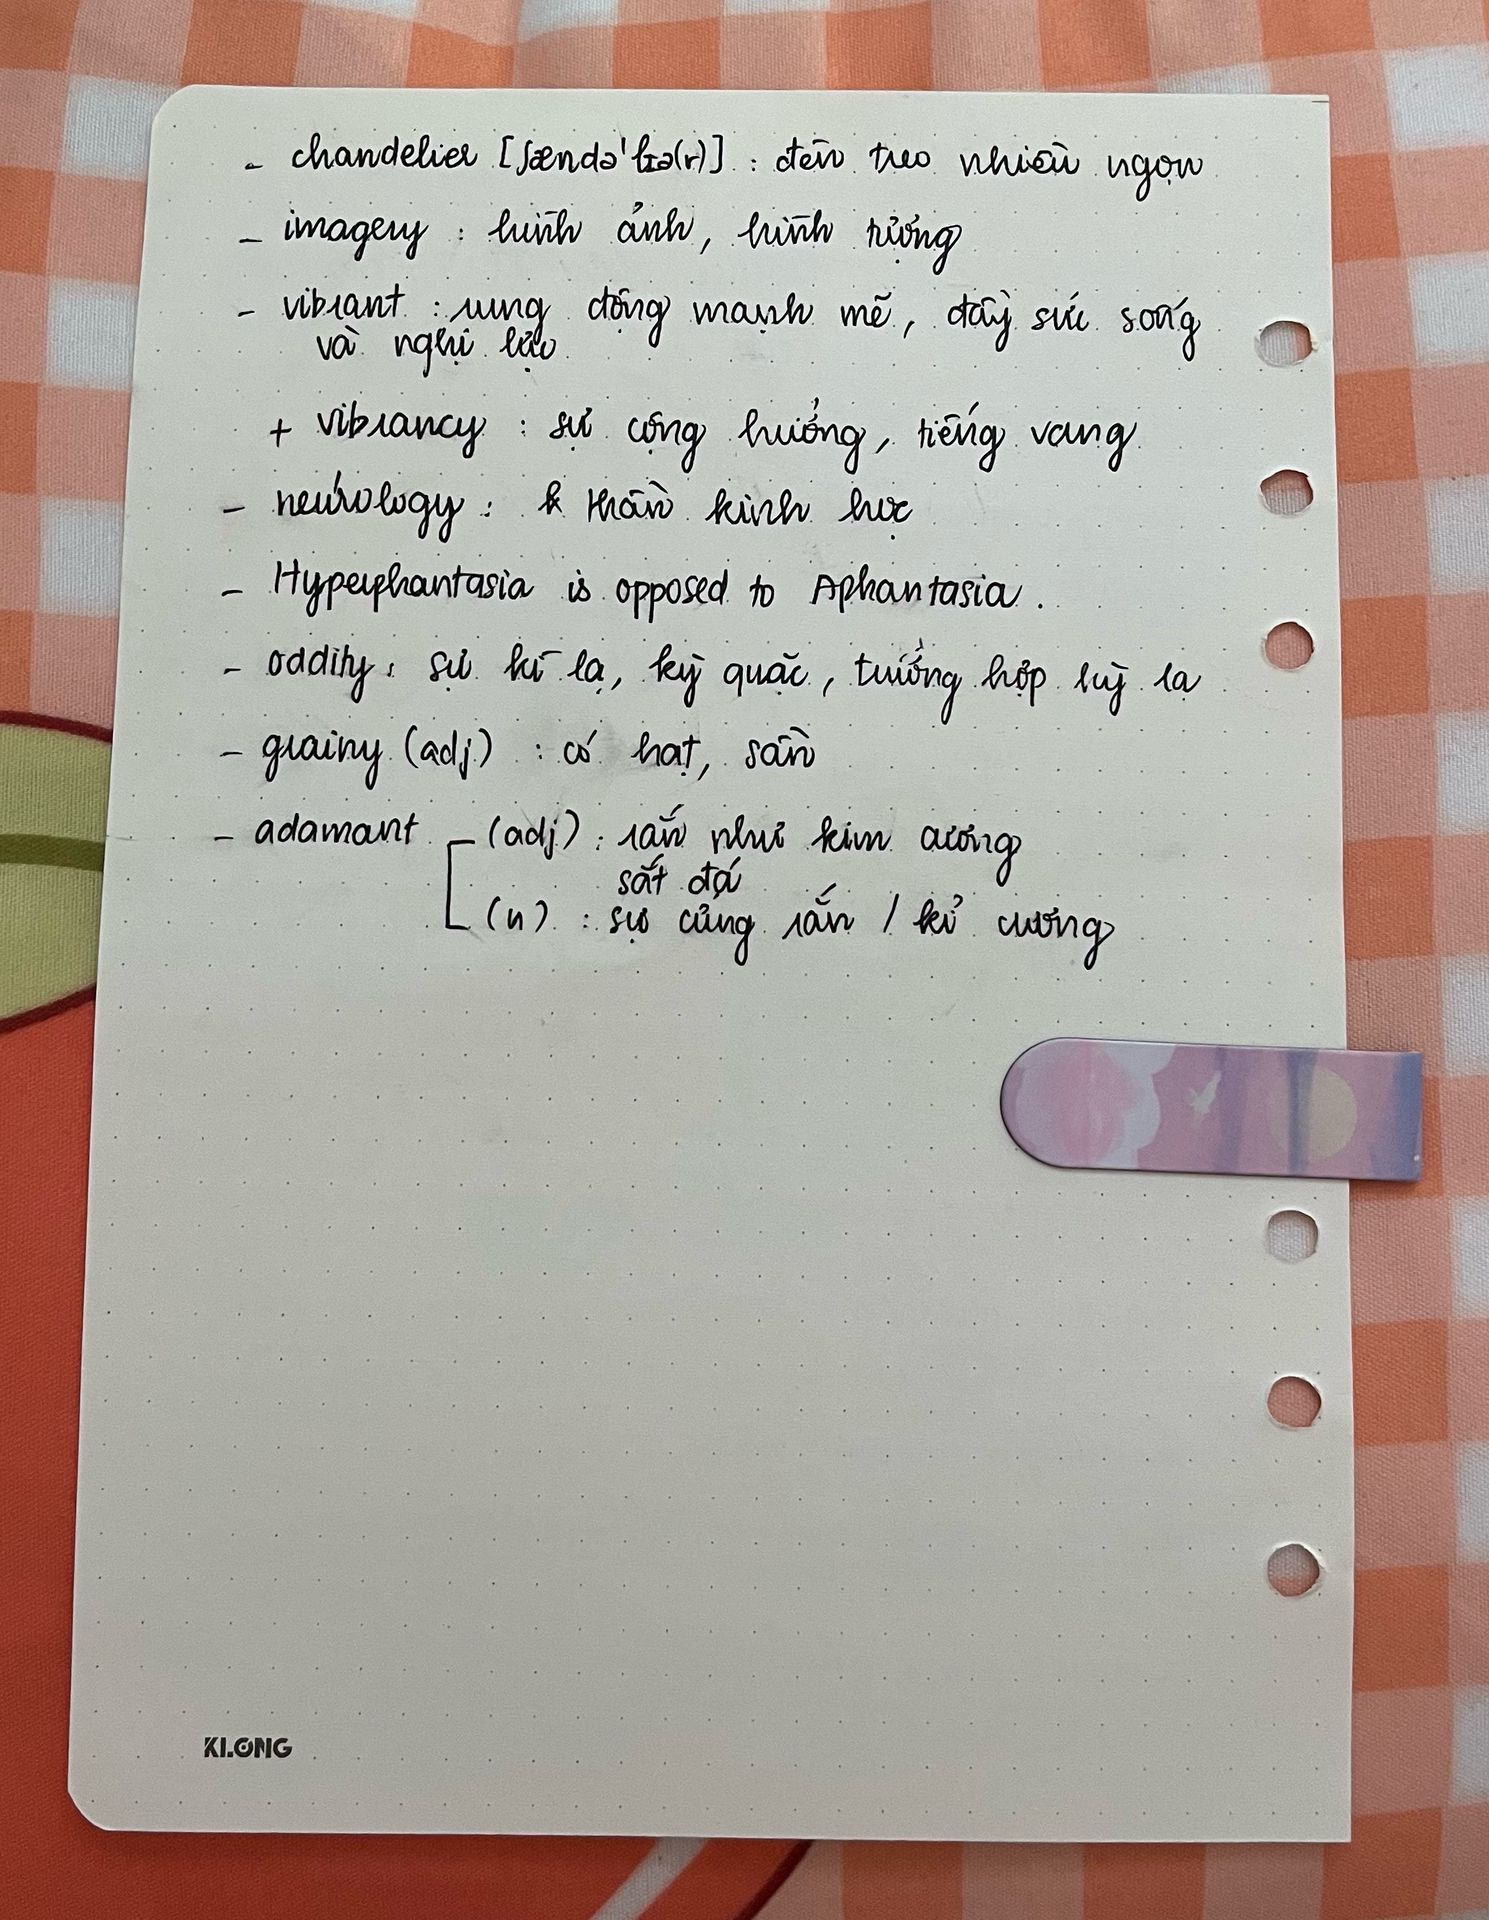 - chandelier [ʃændə'lɪə(r)] : đèn treo nhiều ngọn
- imagery : hình ảnh, hình tượng
- vibrant : rung động mạnh mẽ, đầy sức sống
và nghị lực
+ vibrancy : sự cộng hưởng, tiếng vang
- neurology : thần kinh học
- Hyperphantasia is opposed to Aphantasia.
- oddity : sự kì lạ, kỳ quặc, trường hợp kỳ lạ
- grainy (adj) : có hạt, sần
- adamant - (adj) : rắn như kim cương
sắt đá
(n) : sự cứng rắn / kỉ cương
KLONG